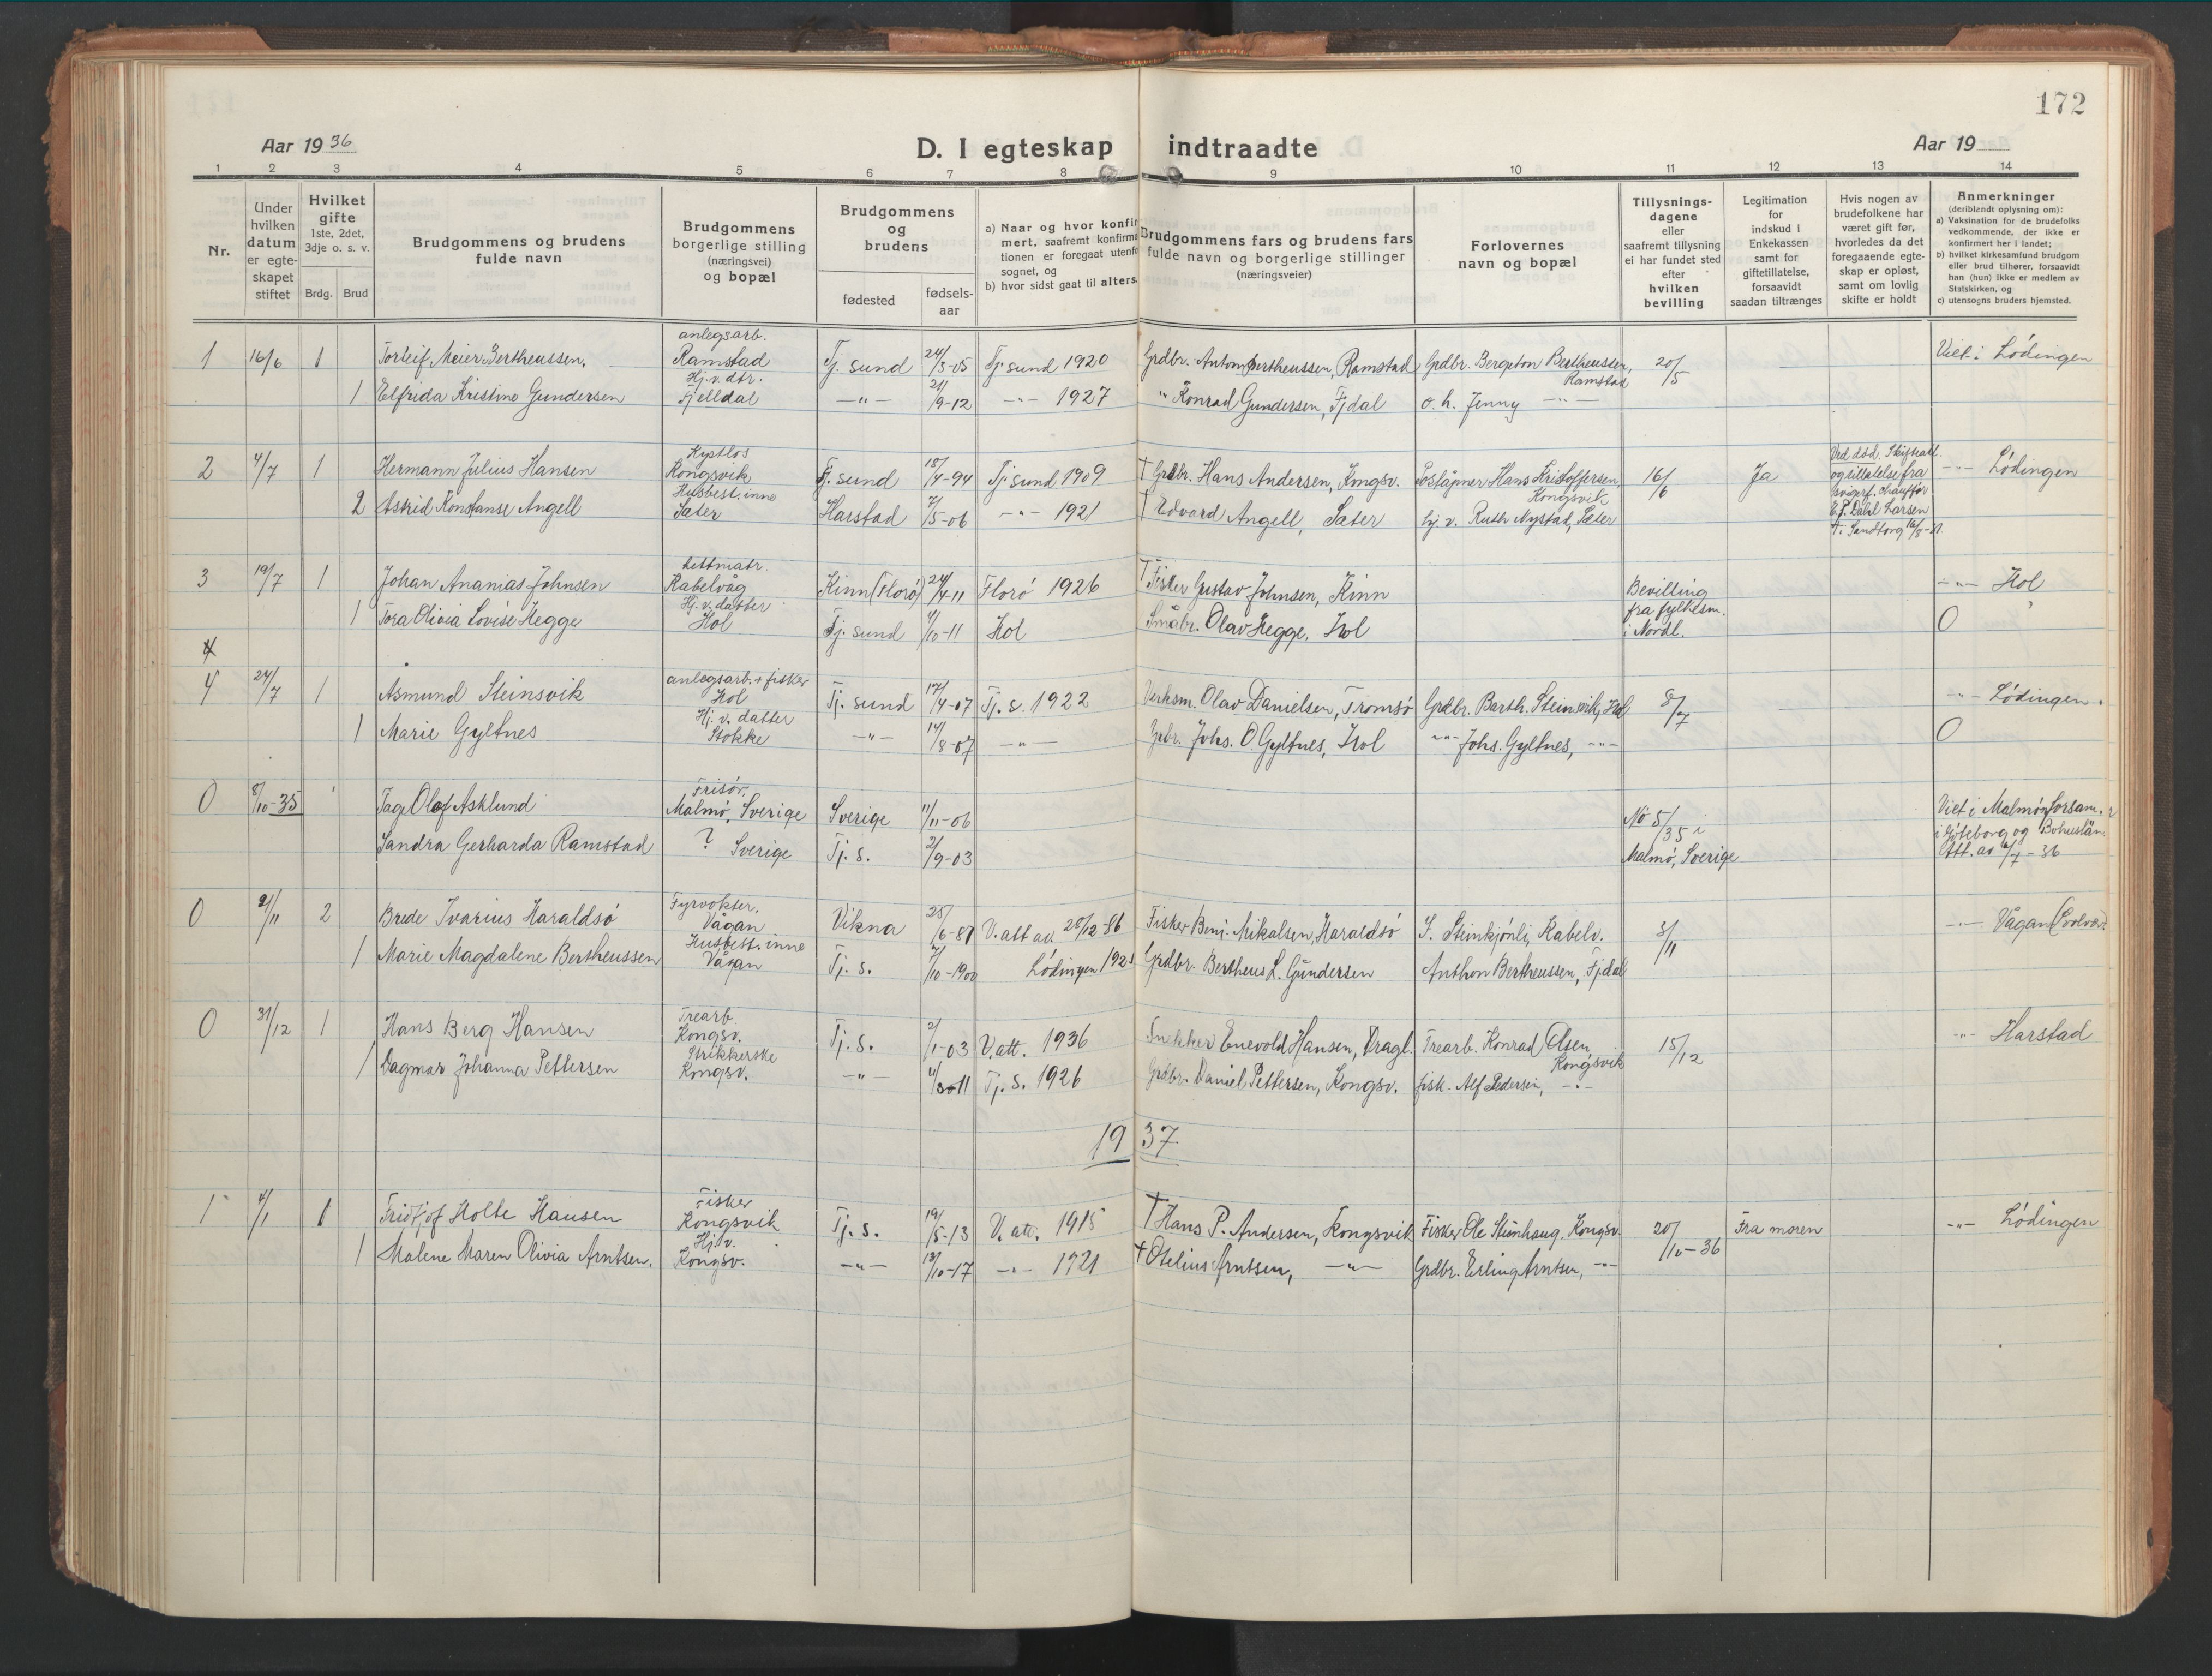 172
Aar 1936
D. I egteskap indtraadte
Aar 19
1 2 3 4 5 6 7 8 9 10 11 12 13 14
Nr.
Under hvilken datum er egteskapet stiftet
Hvilket gifte
1ste, 2det, 3dje o. s. v.
Brdg. Brud
Brudgommens og brudens fulde navn
Brudgommens borgerlige stilling (næringsvei) og bopæl
Brudgommens og brudens
fødested
fødselsaar
a) Naar og hvor konfir
mert, saafremt konfirma
tionen er foregaat utenfo
sognet, og
b) hvor sidst gaat til alters.
Brudgommens fars og brudens fars
fulde navn og borgerlige stillinger
(næringsveier)
Forlovernes
navn og bopæl
Tillysnings-
dagene
eller
saafremt tillysning
ei har fundet sted
efter
hvilken
bevilling
Legitimation
for
indskud i
Enkekassen
samt for
giftetillatelse,
forsaavidt
saadan tiltrænges
Hvis nogen av
brudefolkene har
været gift før,
hvorledes da det
foregaaende egte-
skap er opløst,
samt om lovlig
skifte er holdt
Anmerkninger
(deriblendt oplysning om):
a) Vaksination for de brudefolks
vedkommende, der ikke er
konfirmert her i landet;
b) hvilket kirkesamfund brudgom
eller brud tilhører, forsaavidt
han (hun) ikke er medlem av
Statskirken, og
c) utensogns bruders hjemsted.
anlegsarb.
1 16/6 1 Torleif Meier Bertheussen, Ramstad Tj. sund 24/3-05 Tj. sund 1920 Grdbr. Anton Bertheussen, Ramstad Grdbr. Bergeton Bertheussen, Ramstad 20/5 Viet i Lödingen
Hj. v. dtr.
1 Elfrida Kristine Gundersen Fjelldal -"- 21/9-12 -"- 1927 " Konrad Gundersen, Fjdal o. h. Jenny -"-
Kystlos
2 4/7 1 Hermann Julius Hansen Kongsvik Tj. sund 18/4-94 Tj. sund 1909 † Grdbr. Hans Andersen, Kongsv. Poståpner Hans Kristoffersen Kongsvik 16/6 Ja Ved död. Skifteatt. og tillatelse fra -"- Lödingen
Husbest.inne
2 Astrid Konstanse Angell Sæter Harstad 7/5-06 -"- 1921 † Edvard Angell, Sæter hj. v. Ruth Nystad, Sæter
E. P. Dahl Larsen
† i Sandtorg 16/8-31.
3 19/7 1 Johan Ananias Johnsen Kabelvåg Kinn (Florö) 24/4 11 Florö 1926 † Fisker Gustav Johnsen, Kinn Bevilling fra fylkesm. i Nordl. -"- Hol
Hj. v. datter
1 Tora Olivia Lovise Hegge Hol Tj. sund 4/10-11 Hol Småbr. Olav Hegge, Hol 0
4
anlegsarb. + fisker
4 24/7 1 Asmund Steinsvik Hol Tj. sund 17/4-07 Tj. s. 1922 Verksm. Olav Danielsen, Tromsö Grdbr. Barth. Steinsvik, Hol 8/7 -"- Lödingen.
Hj. v. datter
1 Marie Gyltnes Stokke -"- 14/8-07 -"- Grbr. Johs. O Gyltnes, Hol -"- Johs. Gyltnes, -"- 0
Frisör.
0 8/10-35 Tage Olof Asklund Malmö, Sverige Sverige 11/11-06 No 5/35 i Malmö, Sverige Viet i Malmö
Sandra Gerharda Ramstad ? Sverige Tj. s. 2/9-03 i Göteborg og Bohuslän
Att. av /7-36
Fyrvokter.
0 21/11 2 Brede Ivarius Haraldsö Vågan Vikna 25/6-81 V. att av 28/12-86 Fisker Benj. Mikalsen, Haraldsö S. Steinkjönli, Kabelv. 3/11 -"- Vågan
Husbest.inne
1 Marie Magdalene Bertheussen Vågan Tj. s. 7/10-1900 Lödingen 192 Grdbr. Bertheus L. Gundersen Anthon Bertheussen, Fjdal
Trearb.
0 31/12 1 Hans Berg Hansen Kongsv. Tj. s. 2/1-03 V. att. 1936 Snekker Enevold Hansen, Dragl. Trearb. Konrad Olsen, Kongsvik 15/12 -"- Harstad
Strikkerske
1 Dagmar Johanna Pettersen Kongsv. -"- Tj. s. 1926 Grdbr. Daniel Pettersen, Kongsv. fisk. Alf Pedersen, -"-
1937.
Fisker
1 4/1 1 Fridtjof Holte Hansen Kongsvik Tj. s. 19/5-13 V. att. 1915 † Hans P. Andersen, Kongsvik Fisker Ole Steinhaug. Kongsv. 20/10-36 Fra moren -"- Lödingen
Hj. v.
1 Malene Maren Olivia Arntsen, Kongsv. -"- 13/10-17 -"- 1721 † Otelius Arntsen, -"- Grdbr. Erling Arntsen, -"-